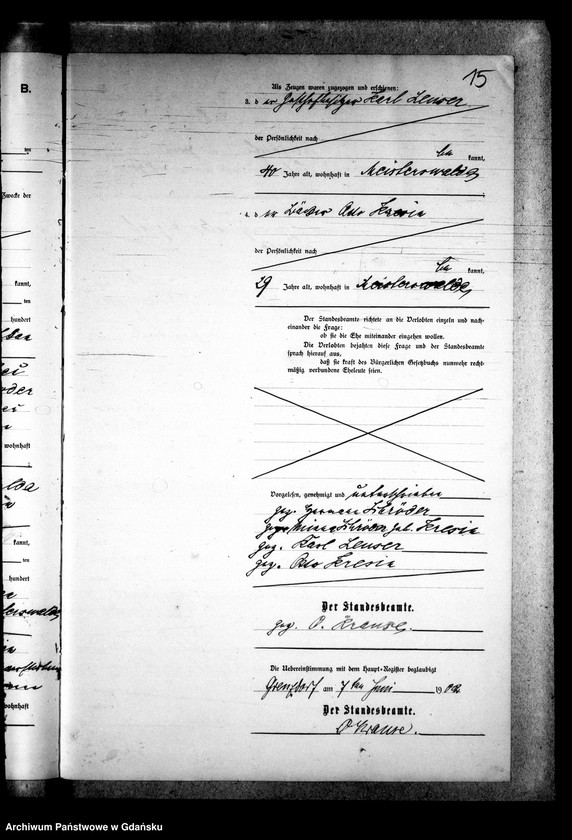 B.
15
Als Zeugen waren zugezogen und erschienen:
3. d er Gasthofbesitzer Karl Leuser
der Persönlichkeit nach
be kannt,
40 Jahre alt, wohnhaft in Meisterswalde
4. d er Bäcker Otto Kresin
der Persönlichkeit nach
be kannt,
29 Jahre alt, wohnhaft in Meisterswalde
Der Standesbeamte richtete an die Verlobten einzeln und nach-
einander die Frage:
ob sie die Ehe miteinander eingehen wollen.
Die Verlobten bejahten diese Frage und der Standesbeamte
sprach hierauf aus,
daß sie kraft des Bürgerlichen Gesetzbuchs nunmehr recht-
mäßig verbundene Eheleute seien.
Vorgelesen, genehmigt und unterschrieben
gez. Herman Schröder
gez. Minna Schröder geb. Kresin
gez. Karl Leuser
gez. Otto Kresin
Der Standesbeamte.
gez. O. Krause.
Die Uebereinstimmung mit dem Haupt-Register beglaubigt
Grenzdorf am 7ten Juni 1902
Der Standesbeamte.
O Krause.
ten
Zwecke der
kannt,
ten
hundert
wohnhaft
kannt,
ten
hundert
wohnhaft
Archiwum Państwowe w Gdańsku